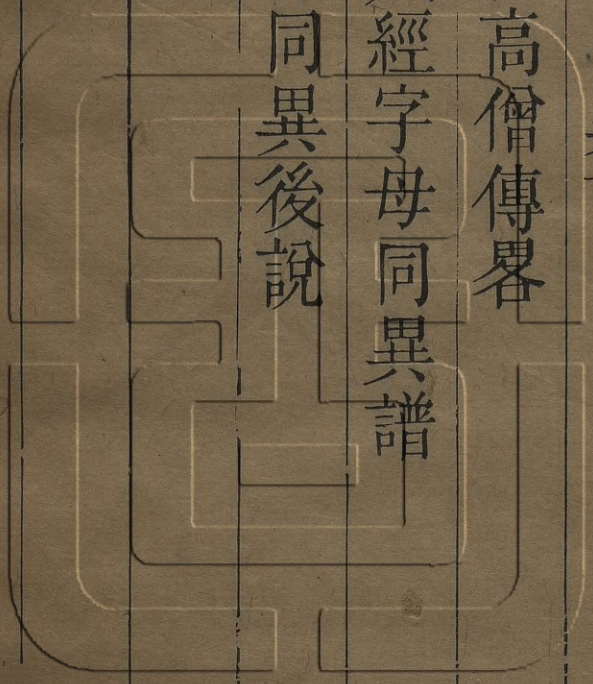 高僧傳畧
經字母同異譜
同異後說